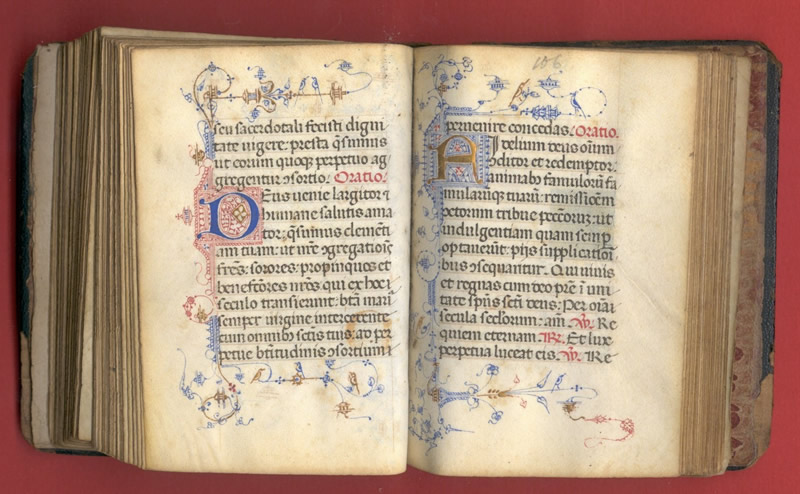 seu sacerdotali fecisti digni
tate uigere: presta q̄sumus
ut eorum quoq̨ perpetuo ag
gregentur ↄsortio. Oratio.
DEus uenie largitor ⁊
humane salutis ama
tor; q̄sumus clemēti
am tuam: ut nr̄e ↄgregatiōis
fr̄es: sorores: propinquos et
benefctores nr̄os qui ex hoc
seculo transierunt: btā mariā
semper uirgine intercedente
cum omnibꝫ scīs tuis: ad per
petue btītudinis ↄsortium
106
peruenire concedas. Oratio.
FIdelium deus oīum
ↄditor et redemptor:
animabꝫ famulorū fa
mularūq̨ tuarū: remissiōem
ↄctorum tribue peccatorꝫ: ut
indulgentiam quam semp
optauerūt: pijs supplicatiōi
bus ↄsequantur. Qui uiuis
et regnas cum deo pr̄e ī uni
tate sp̄us sc̄ti deus: Per oīa
secula sc̄lorum: am̄. V̄. Re
quiem eternam. R̄. Et lux
perpetua luceat eis. V̄. Re